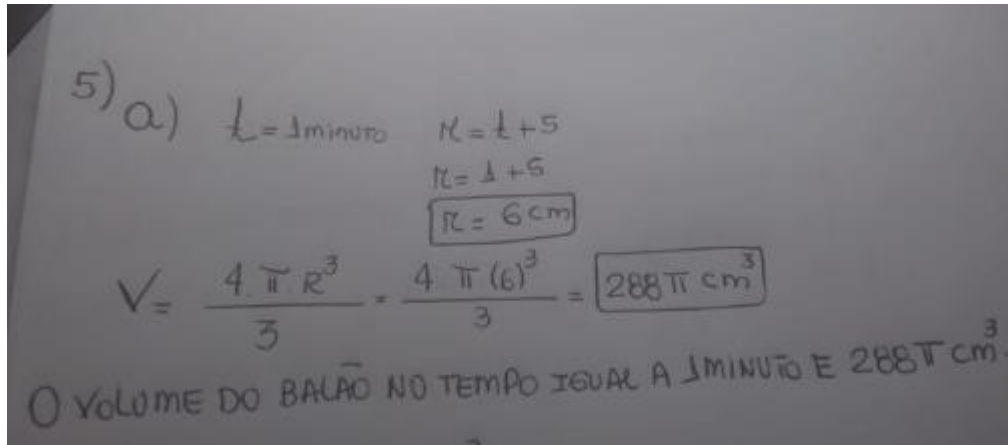 5) a) t = 1 minuto r = t + 5
r = 1 + 5
r = 6 cm
V = 4.π.R³/3 = 4.π(6)³/3 = 288π cm³
O VOLUME DO BALÃO NO TEMPO IGUAL A 1 MINUTO E 288π cm³.